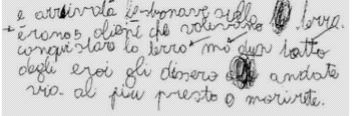 e arrivata le bonave sulla terra.
erano olieni che volevano
conquistare la terra mo dun tratto
degli eroi gli dissero andate
via al piu presto o morirete.